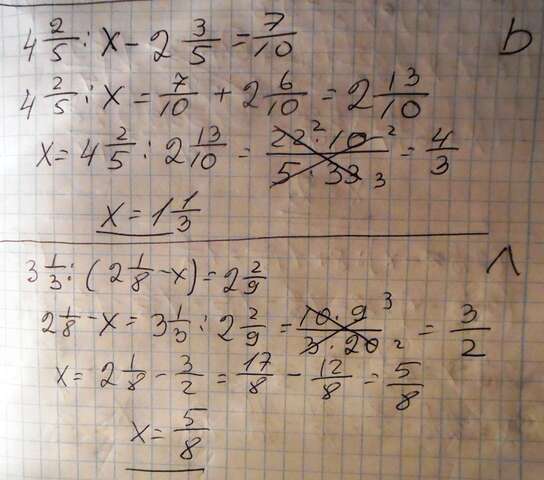 4 2/5 : x - 2 3/5 = 7/10 b
4 2/5 : x = 7/10 + 2 6/10 = 2 13/10
x = 4 2/5 : 2 13/10 = 22² · 10² / 5 · 33 3 = 4/3
x = 1 1/3
3 1/3 : (2 1/8 - x) = 2 2/9 Λ
2 1/8 - x = 3 1/3 : 2 2/9 = 10 · 9³ / 3 · 20 2 = 3/2
x = 2 1/8 - 3/2 = 17/8 - 12/8 = 5/8
x = 5/8